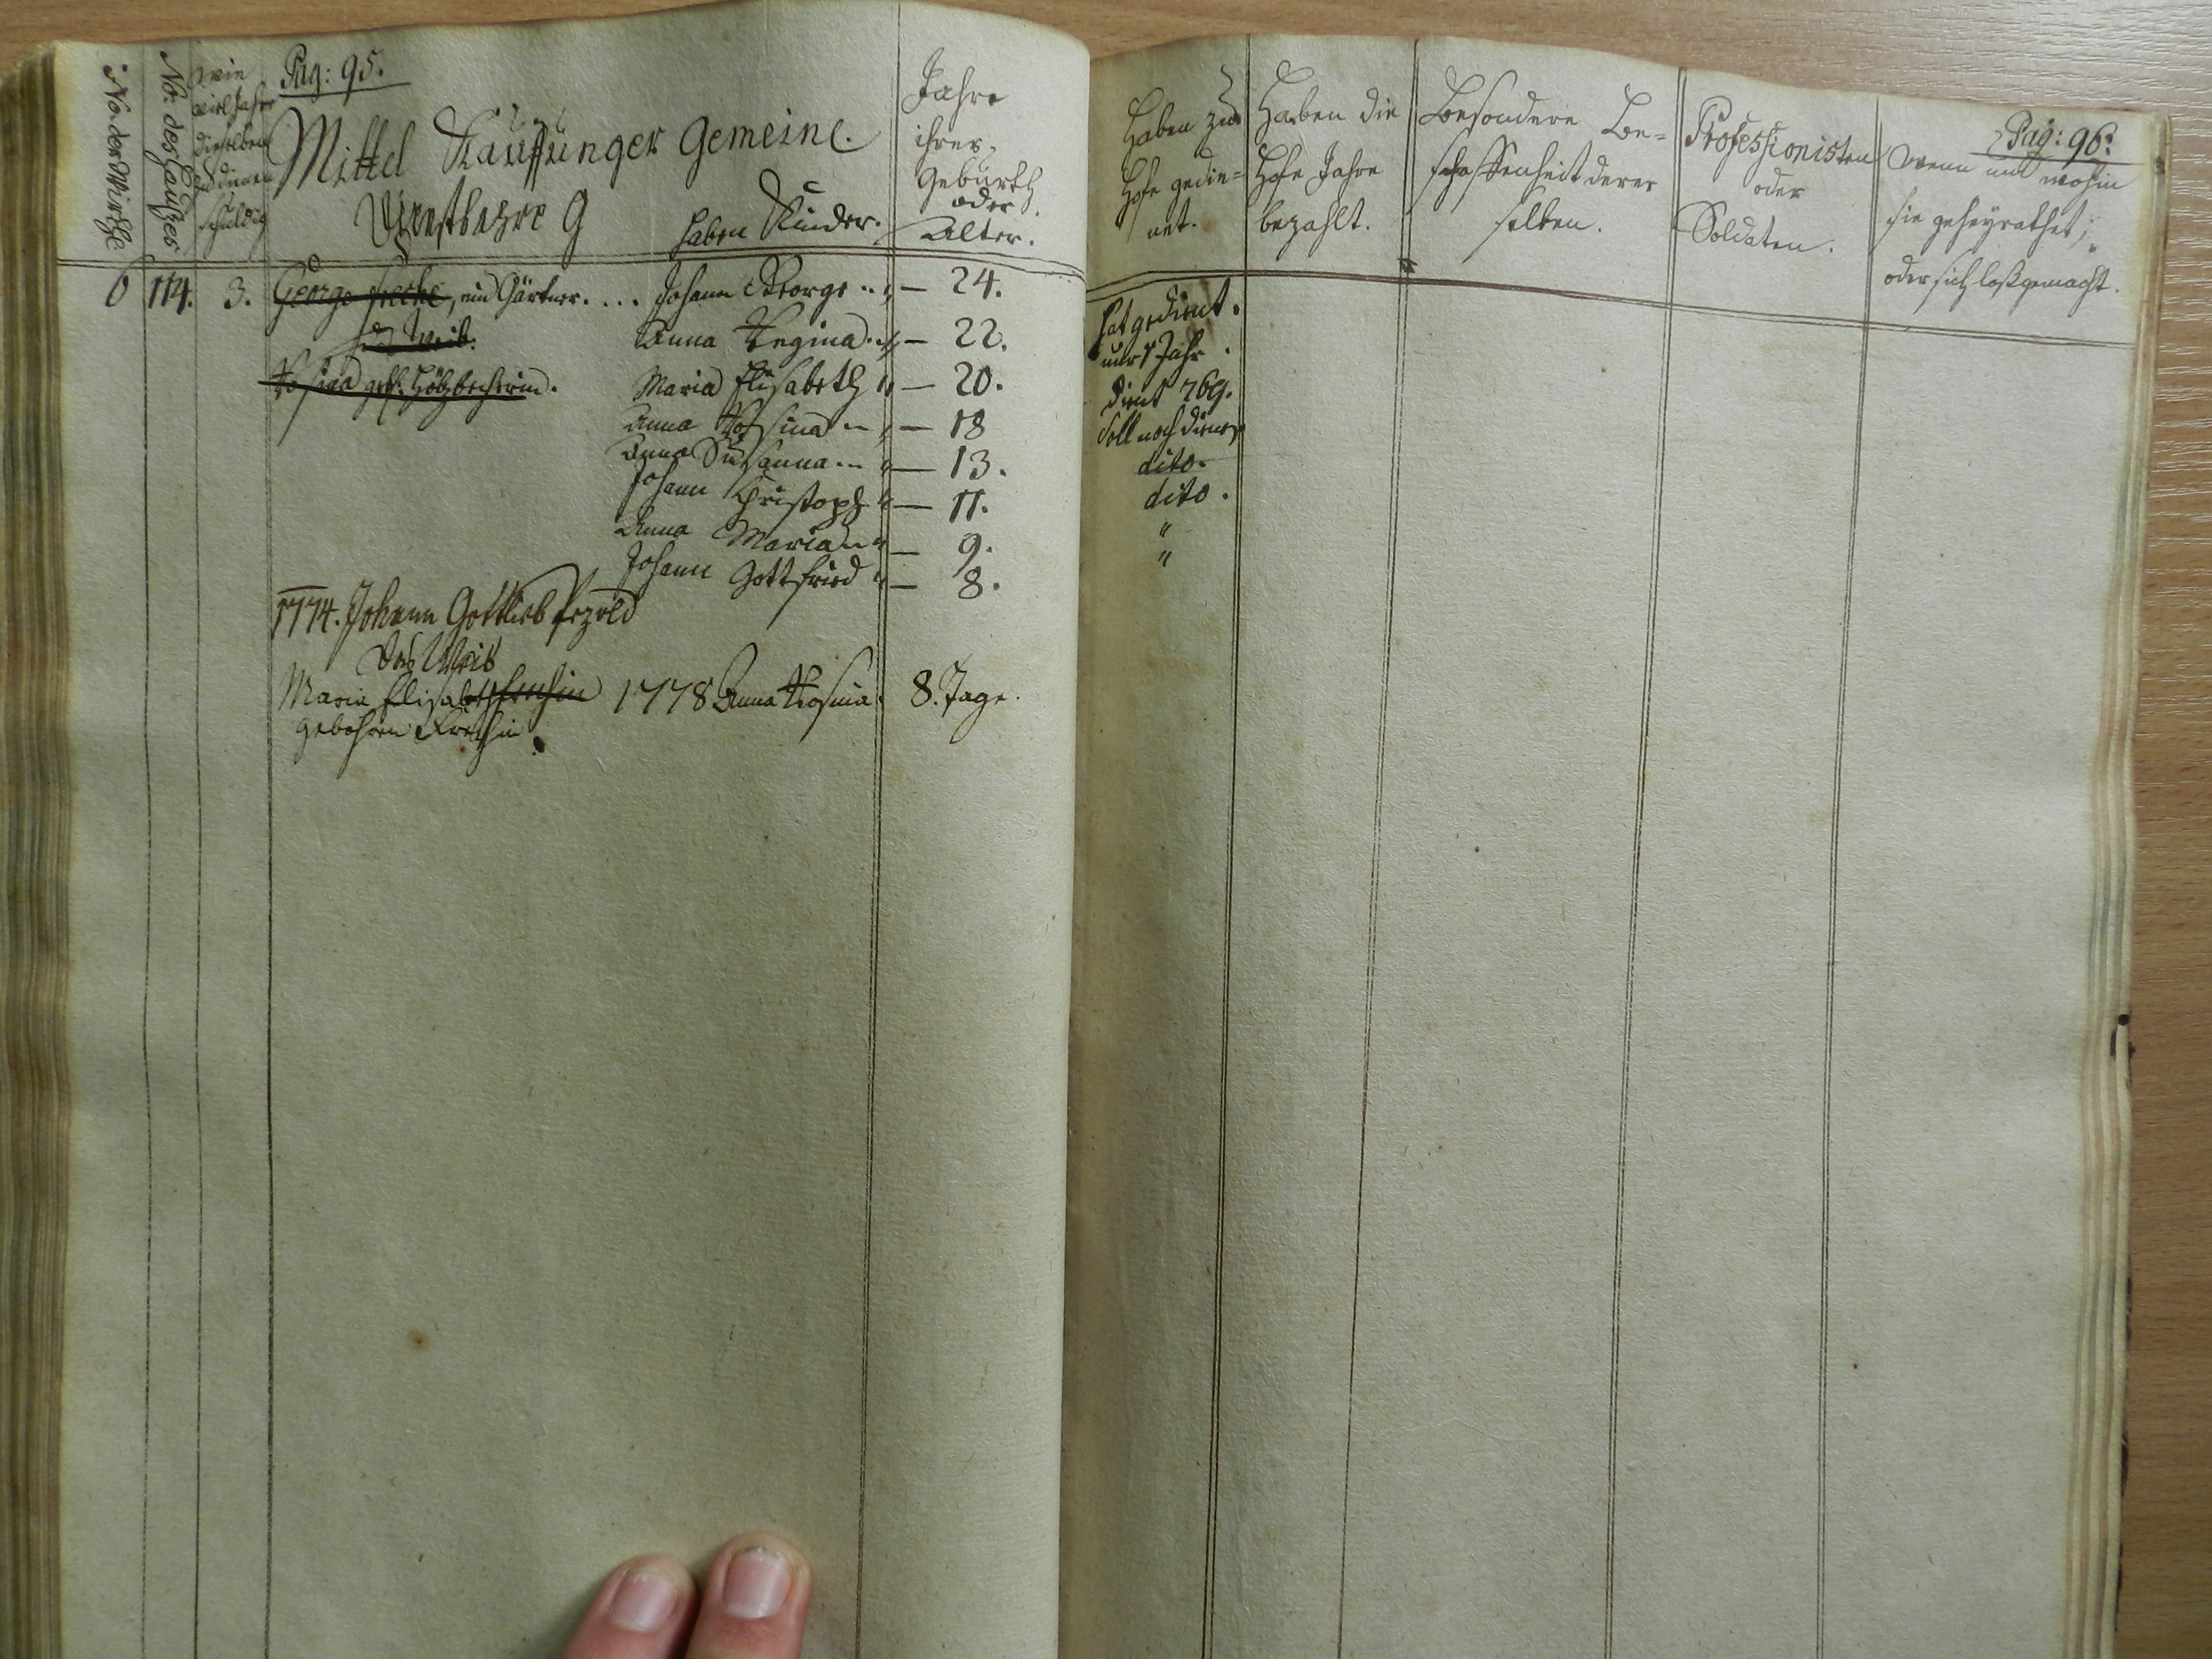 No: der Wirthe
No: des Haußes
wie
viel Jahre
dieselben
zu dienen
schuldig
Pag: 95.
Mittel Kauffunger Gemeine.
haben Kinder.
Jahre
ihrer
Geburth
oder
Alter.
6 114. 3. George, ein Gärtner. . . . Johann George 24.
das Weib. Anna Regina 22.
Rosina Maria Elisabeth 20.
Anna Rosina 18
Anna Susanna 13.
Johann Christoph 11.
Anna Maria 9.
Johann Gottfried 8.
1774. Johann Gottlieb Pezold
das Weib
Maria Elisabeth 1778 Anna Rosina. 8. Tage.
gebohren
Haben zu
Hofe gedie=
net.
Haben die
Hofe Jahre
bezahlt.
Besondere Be=
schaffenheit derer
selben.
Professionisten
oder
Soldaten.
Pag: 96.
wenn und wohin
sie geheyrathet,
oder sich loßgemacht.
hat gedient.
nur 1 Jahr.
dient 769.
Soll noch dienen
dito.
dito.
"
"